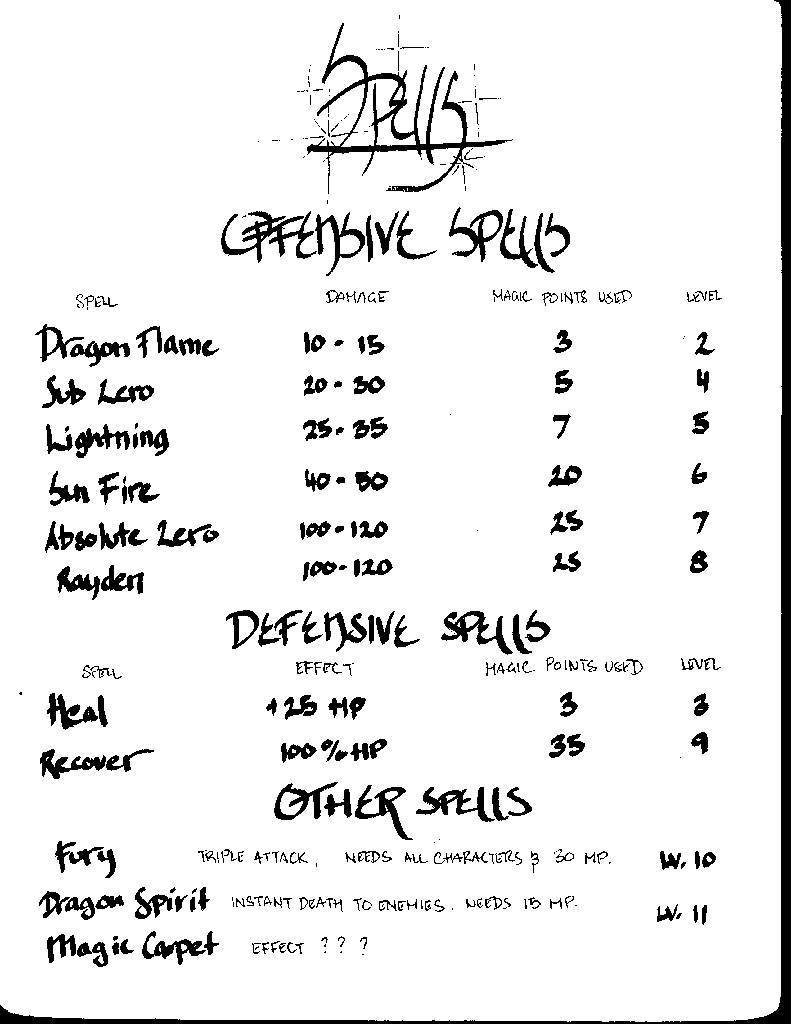 Spells
OFFENSIVE SPELLS
SPELL DAMAGE MAGIC POINTS USED LEVEL
Dragon Flame 10 - 15 3 2
Sub Zero 20 - 30 5 4
Lightning 25 - 35 7 5
Sun Fire 40 - 50 20 6
Absolute Zero 100 - 120 25 7
Rayden 100 - 120 25 8
DEFENSIVE SPELLS
SPELL EFFECT MAGIC POINTS USED LEVEL
Heal +25 HP 3 3
Recover 100% HP 35 9
OTHER SPELLS
Fury TRIPLE ATTACK, NEEDS ALL CHARACTERS & 30 MP. LV. 10
Dragon Spirit INSTANT DEATH TO ENEMIES. NEEDS 15 MP. LV. 11
Magic Carpet EFFECT ? ? ?